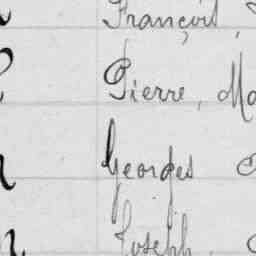 François,
Pierre, Ma
Georges
Joseph,